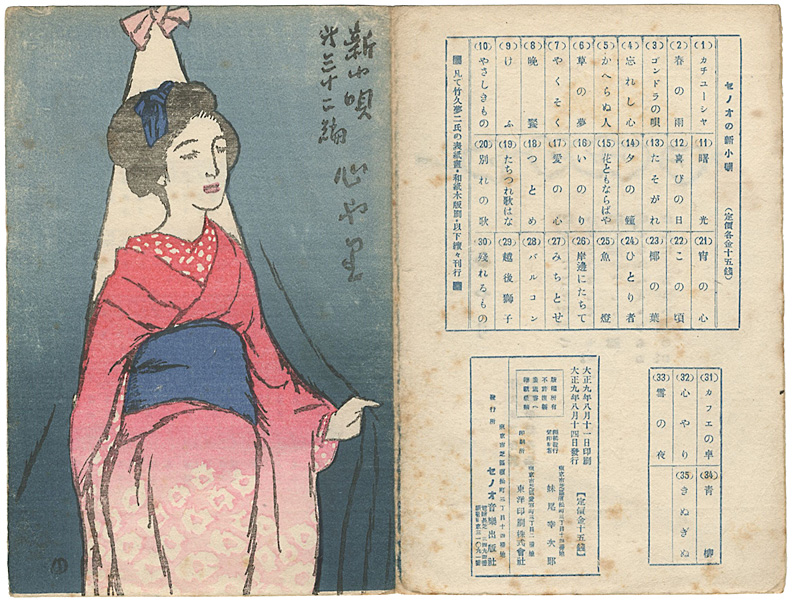 新小唄
第三十二編
心やり
セノオの新小唄
（定價各金十五錢）
(1) カチユーシヤ
(2) 春の雨
(3) ゴンドラの唄
(4) 忘れし心
(5) かへらぬ人
(6) 草の夢
(7) やくそく
(8) 晩餐
(9) けふ
(10) やさしきもの
(11) 曙光
(12) 喜びの日
(13) たそがれ
(14) 夕の鐘
(15) 花ともならばや
(16) いのり
(17) 愛の心
(18) つとめ
(19) たちつれ歌はな
(20) 別れの歌
(21) 宵の心
(22) この頃
(23) 椰の葉
(24) ひとり者
(25) 魚燈
(26) 岸邊にたちて
(27) みちとせ
(28) バルコン
(29) 越後獅子
(30) 殘れるもの
凡て竹久夢二氏の表紙畫・和紙木版刷・以下續々刊行
(31) カフエの卓
(32) 心やり
(33) 雪の夜
(34) 青柳
(35) きぬぎぬ
大正九年八月十一日印刷
大正九年八月十四日發行
【定價金十五錢】
不許複製
妹尾幸次郎
東洋印刷株式會社
發行所
セノオ音樂出版社